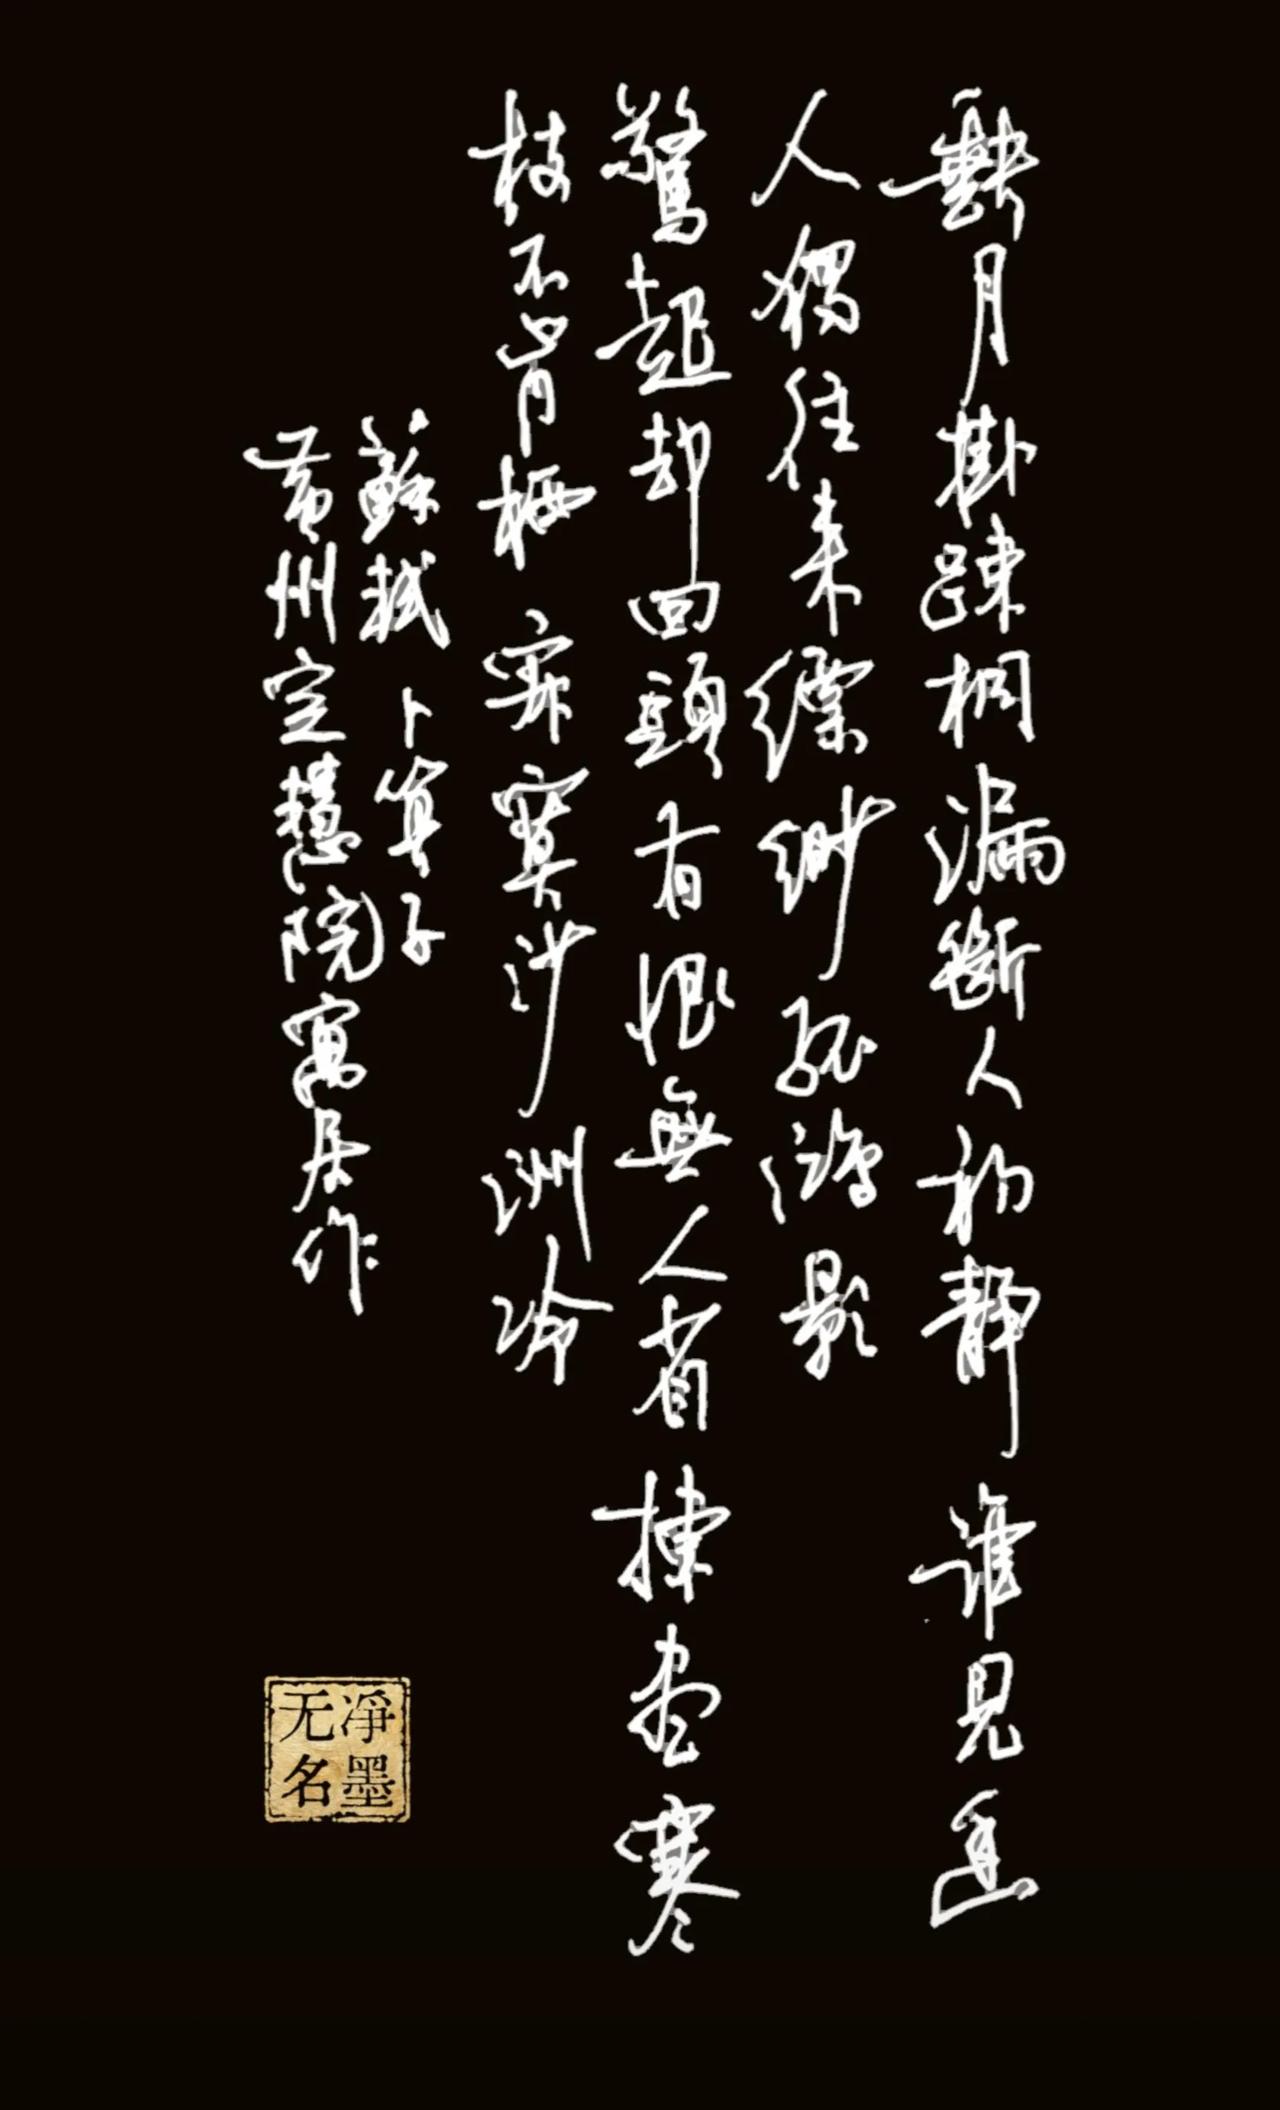 缺月掛疎桐漏斷人初靜誰見幽
人獨往來縹緲孤鴻影
驚起却回頭有恨無人省揀盡寒
枝不肯栖寂寞沙洲冷
蘇軾卜算子
黄州定慧院寓居作
净墨
无名